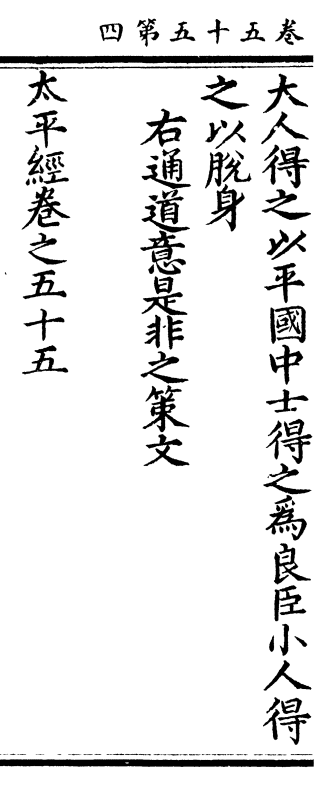 卷五十五第四
大人得之以平國中士得之爲良臣小人得
之以脫身
右通道意是非之策文
太平經卷之五十五